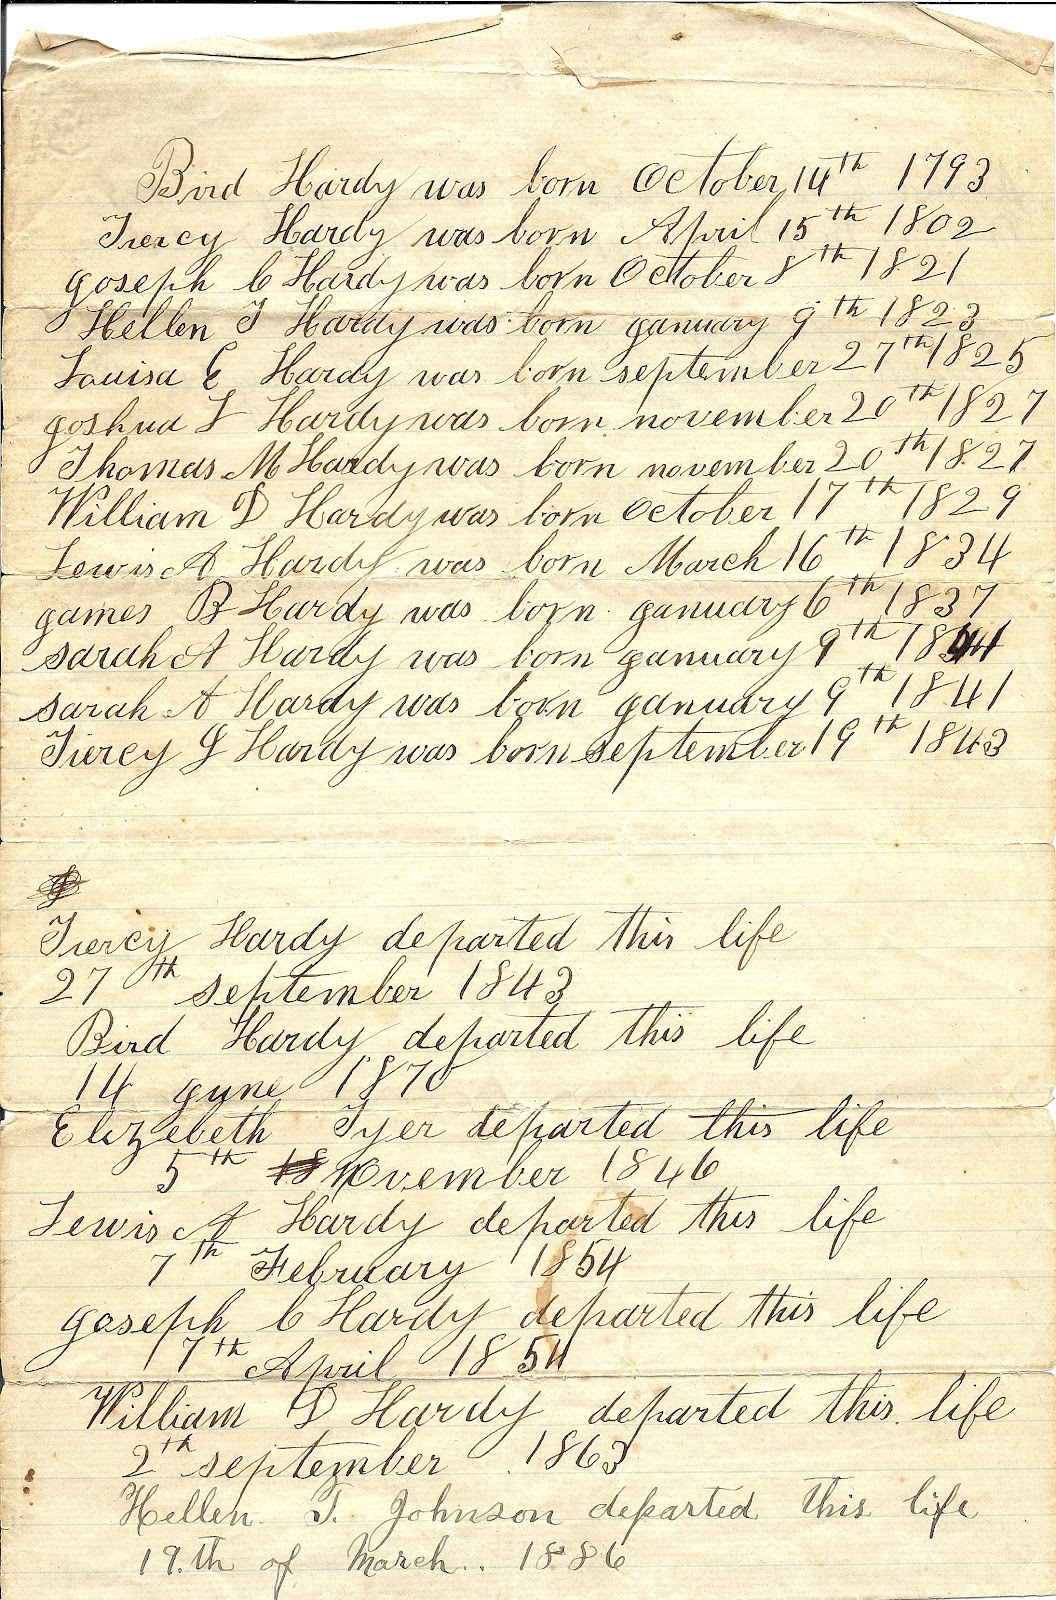 Bird Hardy was born October 14th 1793
Tiercy Hardy was born April 15th 1802
goseph C Hardy was born October 8th 1821
Hellen T Hardy was born ganuary 9th 1823
Louisa E Hardy was born september 27th 1825
goshua L Hardy was born november 20th 1827
Thomas M Hardy was born november 20th 1827
William D Hardy was born October 17th 1829
Lewis A Hardy was born March 16th 1834
games B Hardy was born ganuary 6th 1837
sarah A Hardy was born ganuary 9th
sarah A Hardy was born ganuary 9th 1841
Tiercy J Hardy was born september 19th 1843
Tiercy Hardy departed this life
27th september 1843
Bird Hardy departed this life
14 gune 1870
Elizebeth Tyer departed this life
5th November 1846
Lewis A Hardy departed this life
7th February 1854
goseph C Hardy departed this life
7th April 1854
William D Hardy departed this life
2th september 1863
Hellen. T. Johnson departed this life
19.th of March.. 1886